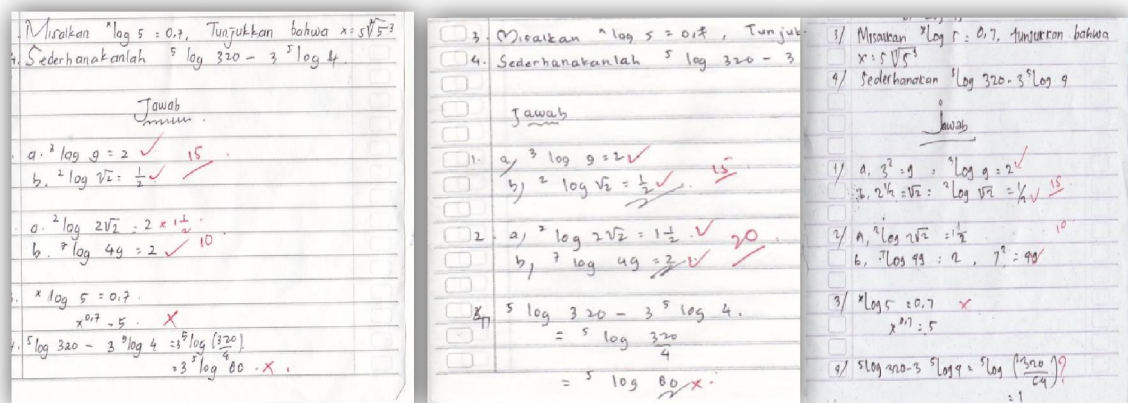 Misalkan ˣlog 5 = 0,7, Tunjukkan bahwa x = 5⁷√5³
4. Sederhanakanlah ⁵log 320 - 3 ⁵log 4.
Jawab
a. ² log 9 = 2 ✓ 15
b. ² log √2 = 1/2 ✓
a. ²log 2√2 = 2 × 1 1/2
b. ⁷ log 49 = 2 ✓ 10
ˣ log 5 = 0,7.
x⁰˒⁷ = 5. ×
⁵log 320 - 3 ⁵log 4 = 3⁵log (320/4)
= 3⁵log 80 . ×.
3. Misalkan ˣlog 5 = 0,7, Tunjuk
4. Sederhanakanlah ⁵ log 320 - 3
Jawab
1. a, ³ log 9 = 2 ✓
b, ² log √2 = 1/2 ✓ 15
2. a, ² log 2√2 = 1 1/2 . ✓ 20
b, ⁷ log 49 = 2 ✓
⁵ log 320 - 3 ⁵ log 4.
= ⁵ log 320/4
= ⁵ log 80 ×.
3/ Misalkan ˣlog 5 = 0,7, tunjukkan bahwa
x = 5⁷√5³
4/ Sederhanakan ⁵log 320 - 3 ⁵log 4
Jawab
1/ a, 3² = 9 , ³log 9 = 2 ✓
b, 2^1/2 = √2 : ²log √2 = 1/2 ✓ 15
2/ a, ²log 2√2 = 1 1/2 10
b, ⁷log 49 = 2 , 7² = 49 ✓
3/ ˣlog 5 = 0,7 ×
x⁰˒⁷ = 5
4/ ⁵log 320 - 3 ⁵log 4 = ⁵log (320/64) ?
= 1